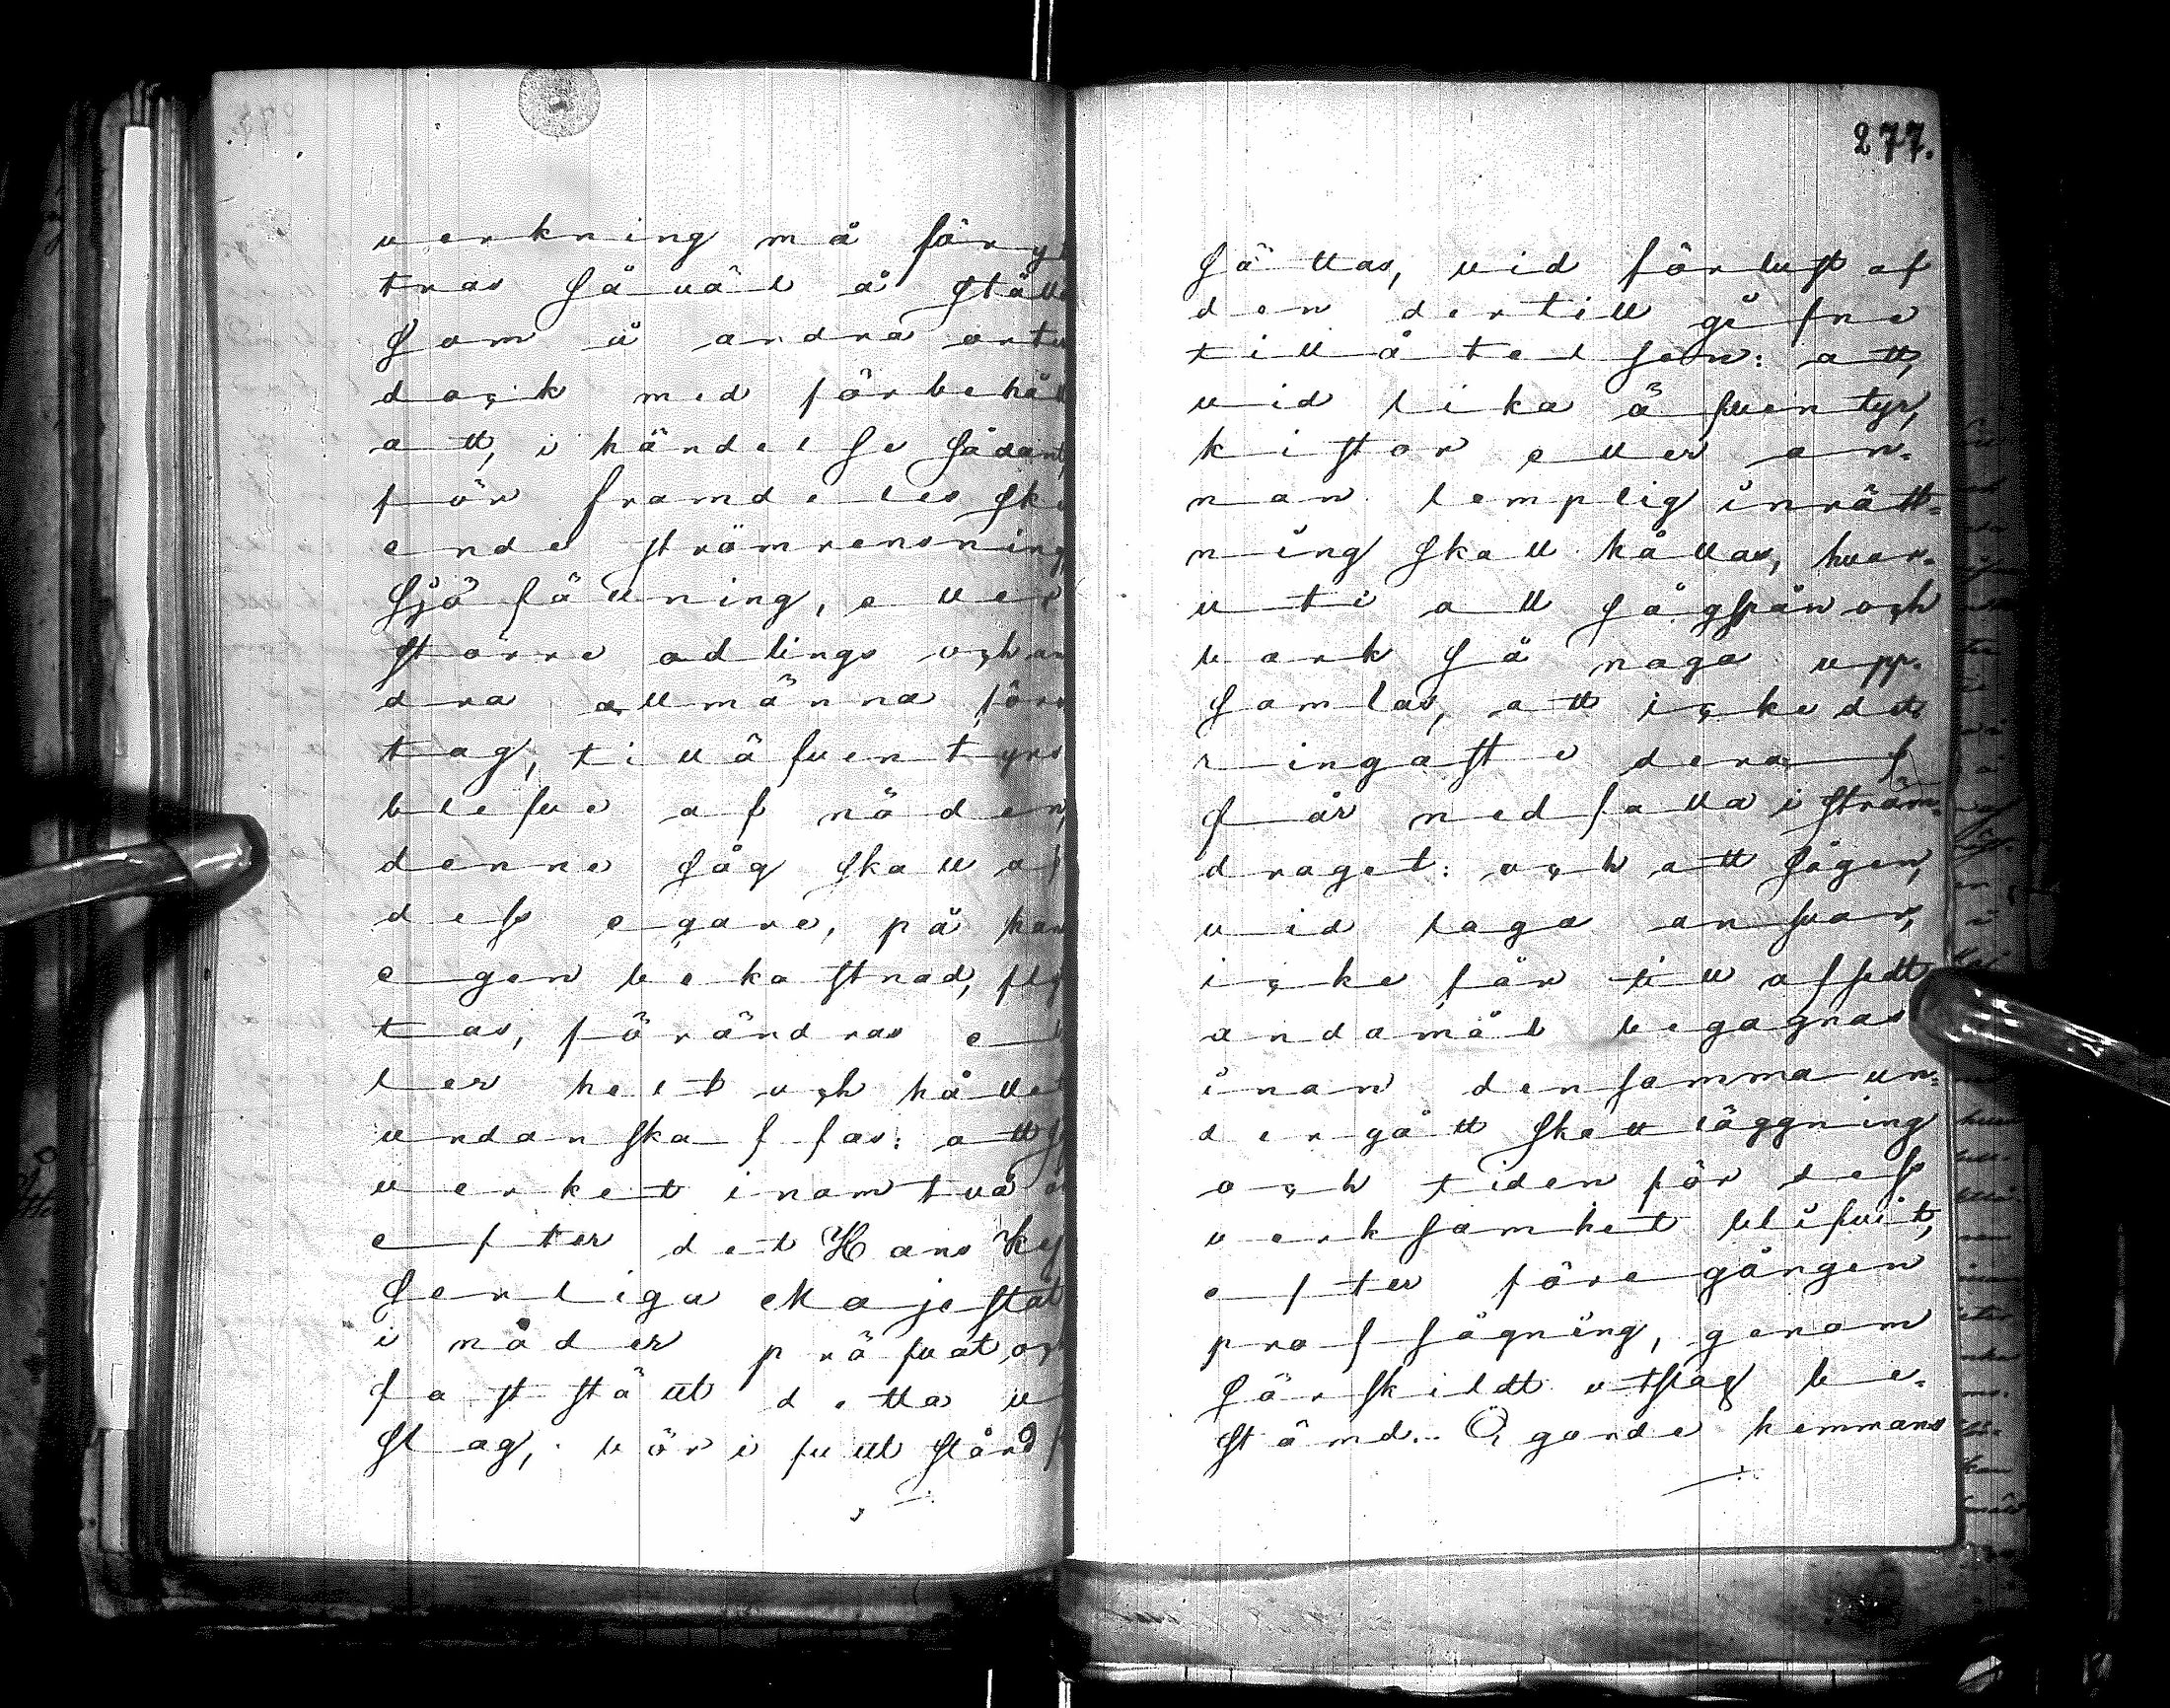 verkning må föryt
tras såväl å ställe
som å andra orter
dock med förbehåll
att, i händelse sådant,
för framdeles ske
ende strömrensning,
sjöfällning, eller
större odlings och an
dra allmänna före
tag, till äfventyrs
blefve af nöden,
denne såg skall af
dess egare, på han
egen bekostnad, fly
tas, förändras el
ler helt och hållet
undanskaffas: att
verket inom två å
efter det Hans Kej
serliga Majestät
i nåder pröfvat och
fastställt detta u
slag, bör i fullt stånd
277.
sättas, vid förlust af
den dertill gifne
tillåtelsen: att,
vid lika äfventyr,
kistor eller an-
nan lemplig inrätt-
ning skall hållas, hvar-
uti all sågspån och
bark så noga upp-
samlas, att icke det
ringaste deraf
får nedfalla i ström-
draget: och att sågen,
vid laga ansvar,
icke får till afsedt
ändamål begagnas
innan densamma un-
dergått skattläggning
och tiden för dess
verksamhet blifvit,
efter föregången
profsågning, genom
särskildt utslag be-
stämd. Ägande hemmans